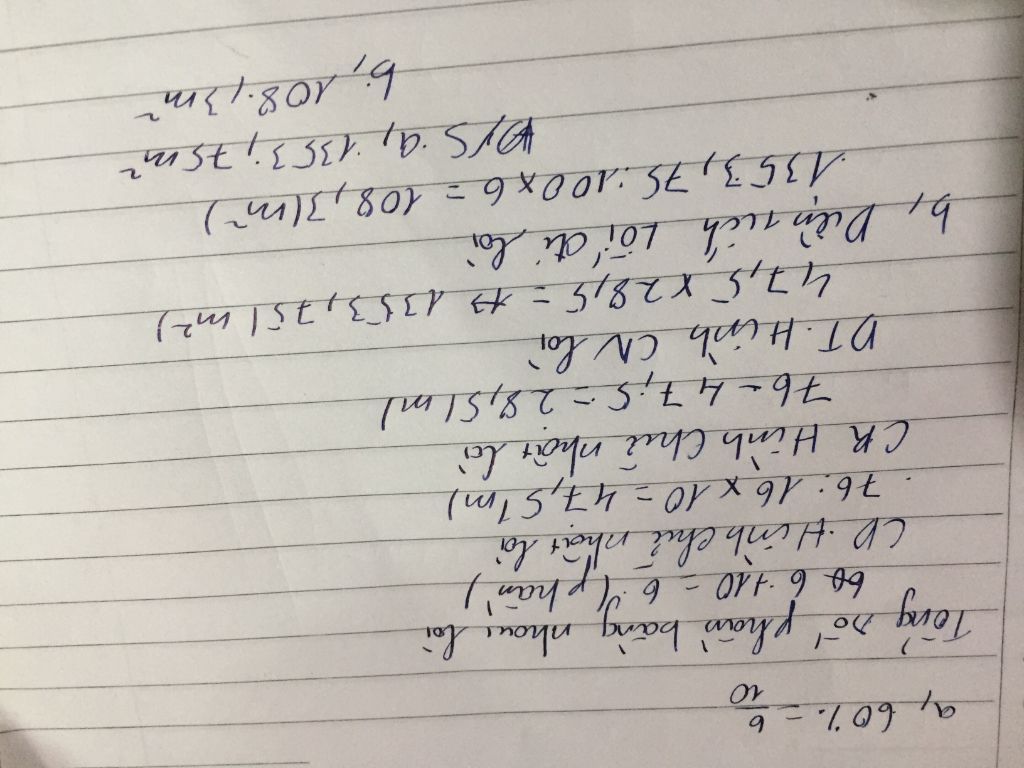 a, 60% = 6/10
Tổng số phần bằng nhau là
6 + 10 = 6 (phần)
CD Hình chữ nhật là
76 : 16 x 10 = 47,5 (m)
CR Hình chữ nhật là
76 - 47,5 = 28,5 (m)
DT Hình CN là
47,5 x 28,5 = 1353,75 (m²)
b, Diện tích Lối đi là
1353,75 : 100 x 6 = 108,3 (m²)
Đ/S a, 1353,75 m²
b, 108,3 m²